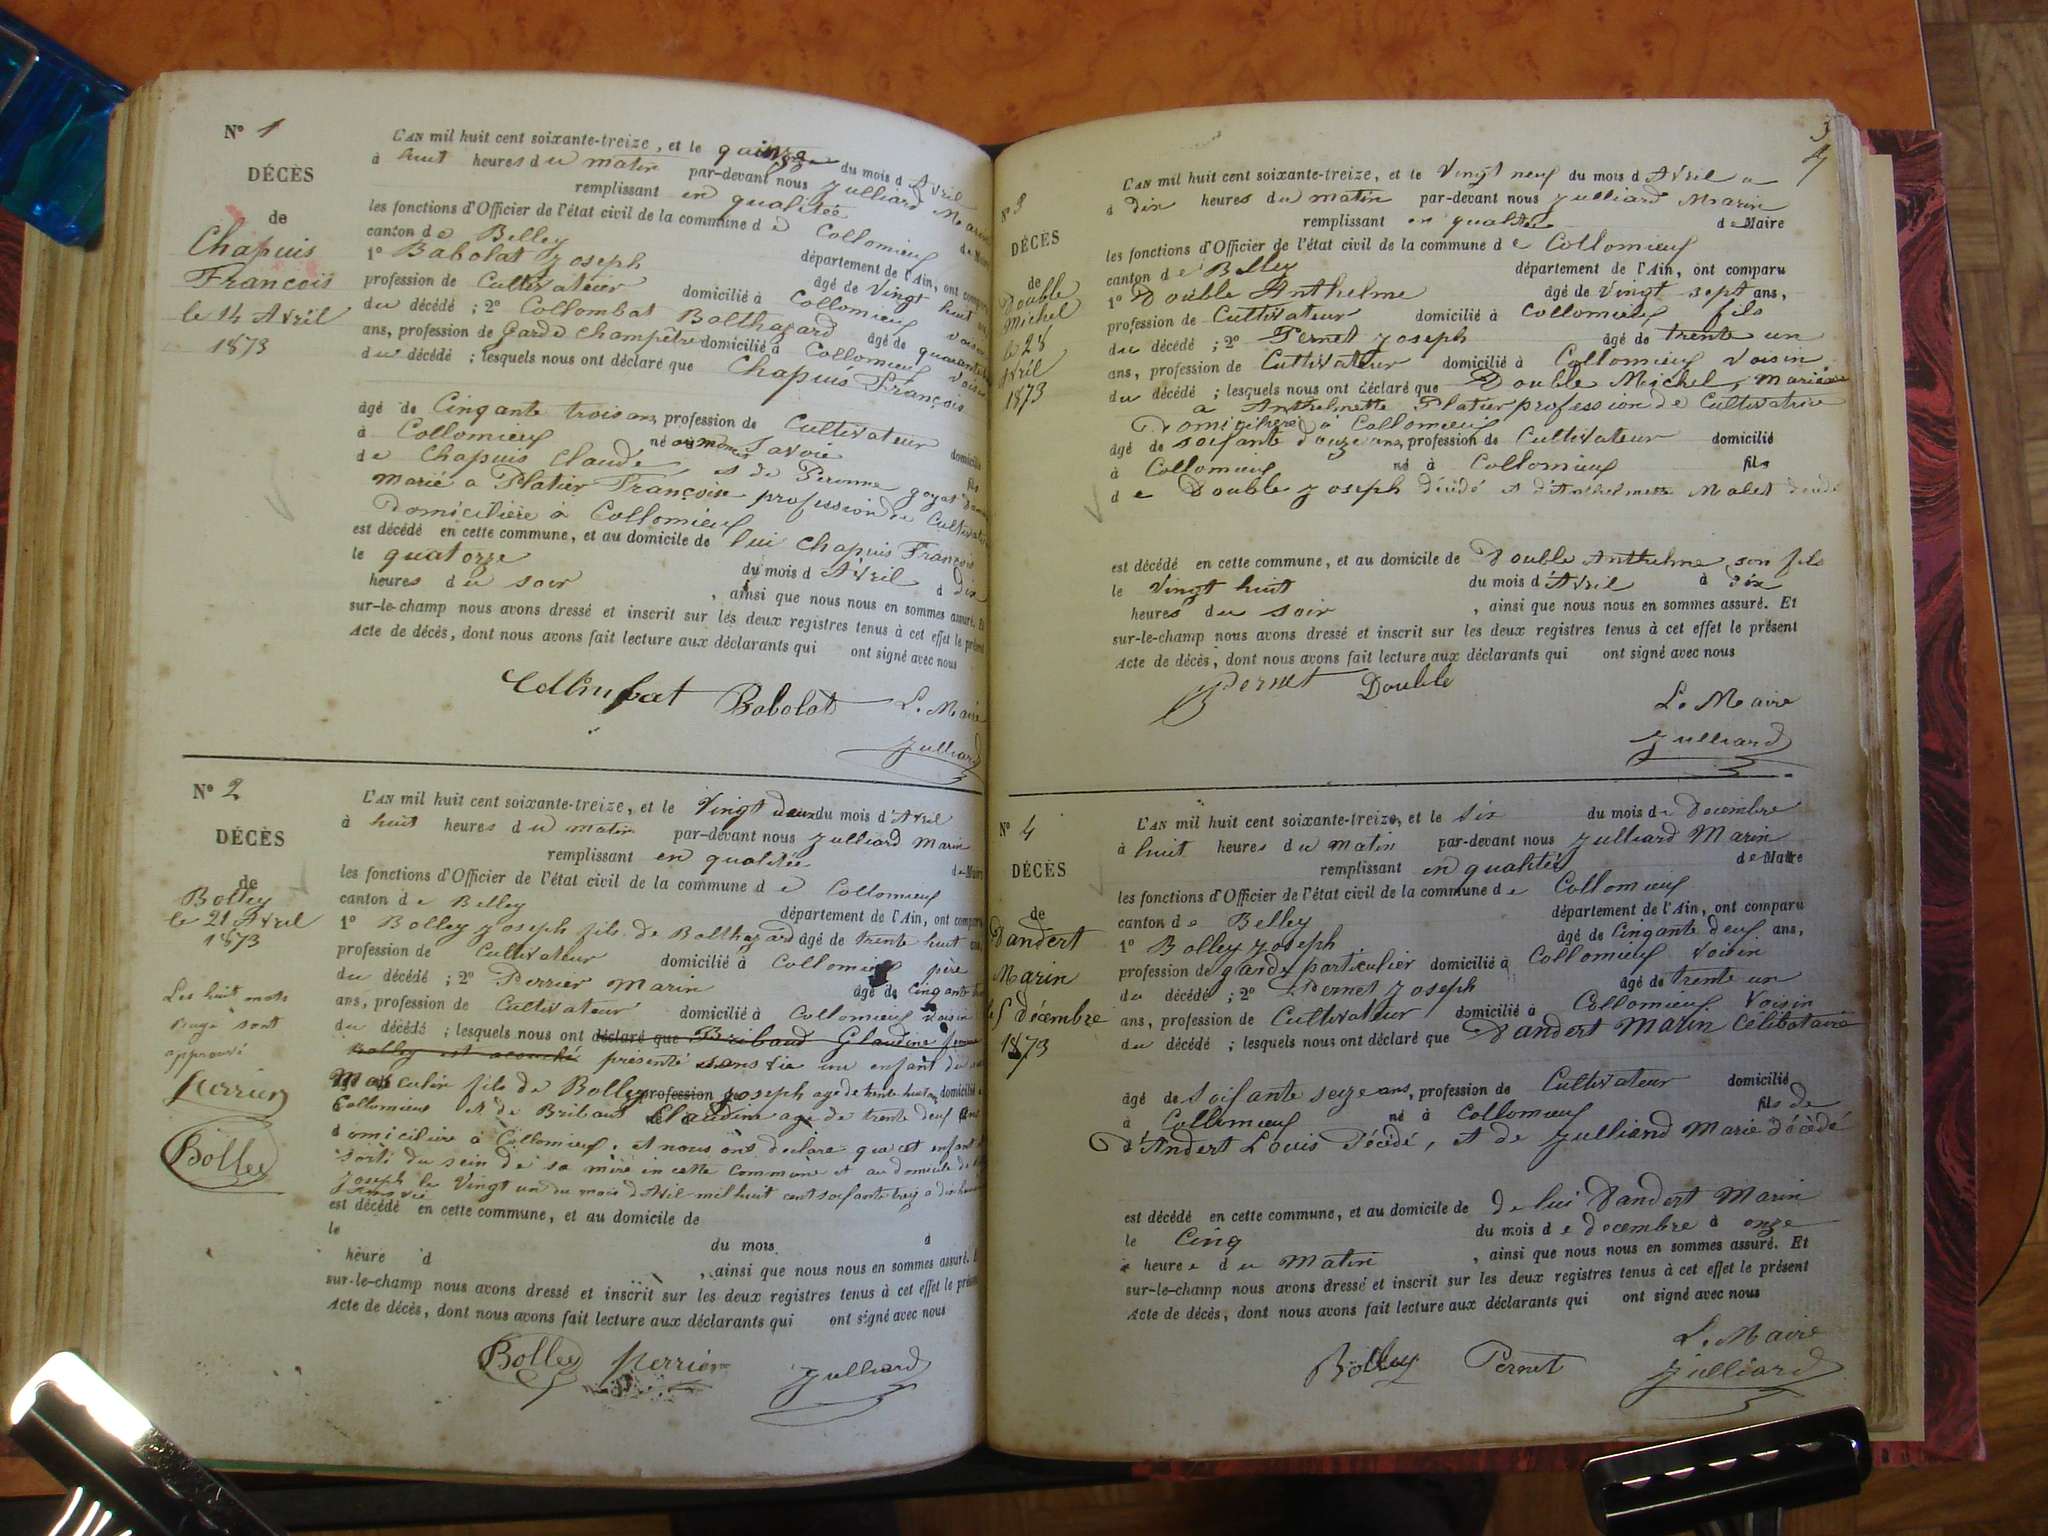 N° 1
DÉCÈS
de
Chapuis
François
le 14 Avril
1873
L'AN mil huit cent soixante-treize, et le quinze du mois d Avril
à huit heures du matin par-devant nous Julliard Marin
remplissant en qualitée de Maire
les fonctions d'Officier de l'état civil de la commune de Collomieux
canton de Belley département de l'Ain, ont comparu
1° Babolat Joseph âgé de Vingt huit
profession de Cultivateur domicilié à Collomieux voisin
du décédé ; 2° Collombat Balthazard âgé de quarante
ans, profession de Garde Champêtre domicilié à Collomieux Voisin
du décédé ; lesquels nous ont déclaré que Chapuis François
âgé de Cinqante trois ans, profession de Cultivateur domicilié
à Collomieux né Savoie fils
de Chapuis Claude et de Peronne goyat
marié a Platier Françoise profession de Cultivatrice
Domicilière à Collomieux
est décédé en cette commune, et au domicile de lui Chapuis François
le quatorze du mois d Avril à dix
heures du soir , ainsi que nous nous en sommes assuré. Et
sur-le-champ nous avons dressé et inscrit sur les deux registres tenus à cet effet le présent
Acte de décès, dont nous avons fait lecture aux déclarants qui ont signé avec nous
Collimbat Babolat L. Maire
Julliard
N° 2
DÉCÈS
de
Bolley
le 21 Avril
1873
Les huit mots
rayé sont
approuvé
Perrier
Bolley
L'AN mil huit cent soixante-treize, et le Vingt deux du mois d'Avril
à huit heures du matin par-devant nous Julliard Marin
remplissant en qualitée de Maire
les fonctions d'Officier de l'état civil de la commune de Collomieux
canton de Belley département de l'Ain, ont comparu
1° Bolley Joseph fils de Balthazard âgé de trente huit ans,
profession de Cultivateur domicilié à Collomieux père
du décédé ; 2° Perrier Marin âgé de Cinqante
ans, profession de Cultivateur domicilié à Collomieux voisin
du décédé ; lesquels nous ont déclaré que Bribaud Glaudine femme
Bolley est acouché présenté sans vie un enfant du
Masculin fils de Bolley profession Joseph age de trente huit ans domicilié
Collomieux et de Bribaud Claudine age de trente deux ans
domicilière à Collomieux, et nous ont declare que cet enfant
sorti du sein de sa mère en cette commune et au domicile de
Joseph le Vingt un du mois d'Avril mil huit cent soixante treize a dix heures
sans vie
est décédé en cette commune, et au domicile de
le du mois à
heure d , ainsi que nous nous en sommes assuré.
sur-le-champ nous avons dressé et inscrit sur les deux registres tenus à cet effet le présent
Acte de décès, dont nous avons fait lecture aux déclarants qui ont signé avec nous
Bolley Perrier Julliard
3
N° 3
DÉCÈS
de
Double
Michel
le 28
Avril
1873
L'AN mil huit cent soixante-treize, et le Vingt neuf du mois d Avril a
à dix heures du matin par-devant nous Julliard Marin
remplissant en qualitée de Maire
les fonctions d'Officier de l'état civil de la commune de Collomieux
canton de Belley département de l'Ain, ont comparu
1° Double Anthelme âgé de Vingt sept ans,
profession de Cultivateur domicilié à Collomieux fils
du décédé ; 2° Pernet Joseph âgé de trente un
ans, profession de Cultivateur domicilié à Collomieux Voisin
du décédé ; lesquels nous ont déclaré que Double Michel, marié
a Anthelmette Platier profession de Cultivatrice
Domicilière à Collomieux
âgé de soixante douze ans, profession de Cultivateur domicilié
à Collomieux né à Collomieux fils
de Double Joseph décédé et d'Anthelmette Malet décédé
est décédé en cette commune, et au domicile de Double Anthelme son fils
le Vingt huit du mois d'Avril à dix
heures du soir , ainsi que nous nous en sommes assuré. Et
sur-le-champ nous avons dressé et inscrit sur les deux registres tenus à cet effet le présent
Acte de décès, dont nous avons fait lecture aux déclarants qui ont signé avec nous
Pernet Double
L. Maire
Julliard
N° 4
DÉCÈS
de
Dandert
Marin
le 5 décembre
1873
L'AN mil huit cent soixante-treize, et le six du mois de Decembre
à huit heures du matin par-devant nous Julliard Marin
remplissant en qualitée de Maire
les fonctions d'Officier de l'état civil de la commune de Collomieux
canton de Belley département de l'Ain, ont comparu
1° Bolley Joseph âgé de Cinqante deux ans,
profession de garde particulier domicilié à Collomieux Voisin
du décédé ; 2° Pernet Joseph âgé de trente un
ans, profession de Cultivateur domicilié à Collomieux Voisin
du décédé ; lesquels nous ont déclaré que Dandert Marin Célibataire
âgé de soixante seize ans, profession de Cultivateur domicilié
à Collomieux né à Collomieux fils de
D'Andert Louis Décédé, et de Julliand Marie décédé
est décédé en cette commune, et au domicile de de lui Dandert Marin
le Cinq du mois de decembre à onze
heure du Matin , ainsi que nous nous en sommes assuré. Et
sur-le-champ nous avons dressé et inscrit sur les deux registres tenus à cet effet le présent
Acte de décès, dont nous avons fait lecture aux déclarants qui ont signé avec nous
L. Maire
Bolley Pernet Julliard